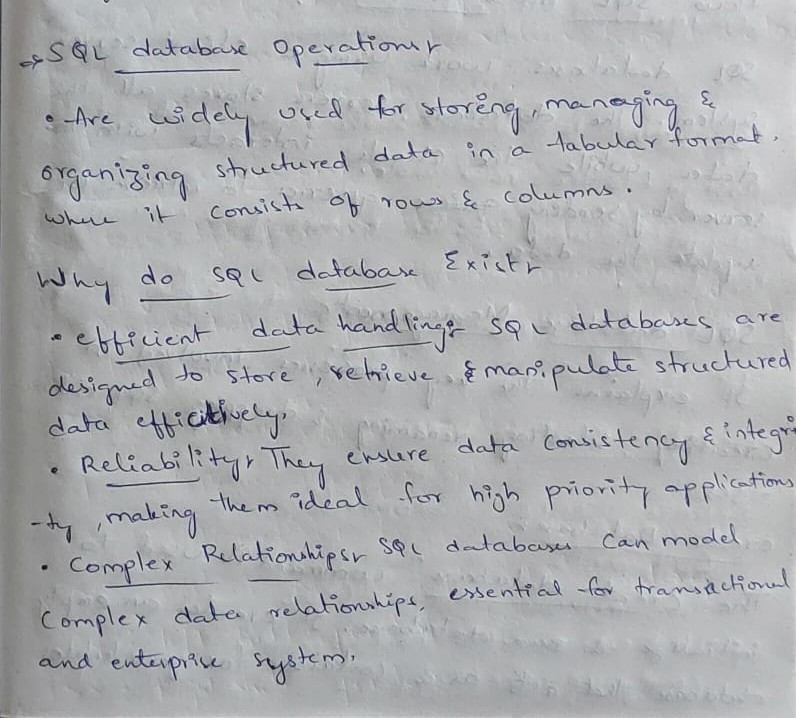 → SQL database Operations:
• Are widely used for storing, managing &
organizing structured data in a tabular format.
where it consists of rows & columns.
Why do SQL database Exist:
• efficient data handling: SQL databases are
designed to store, retrieve & manipulate structured
data efficitively.
• Reliability: They ensure data consistency & integri
-ty, making them ideal for high priority applications
• Complex Relationships: SQL databases can model
Complex data relationships, essential for transactional
and enterprise system.